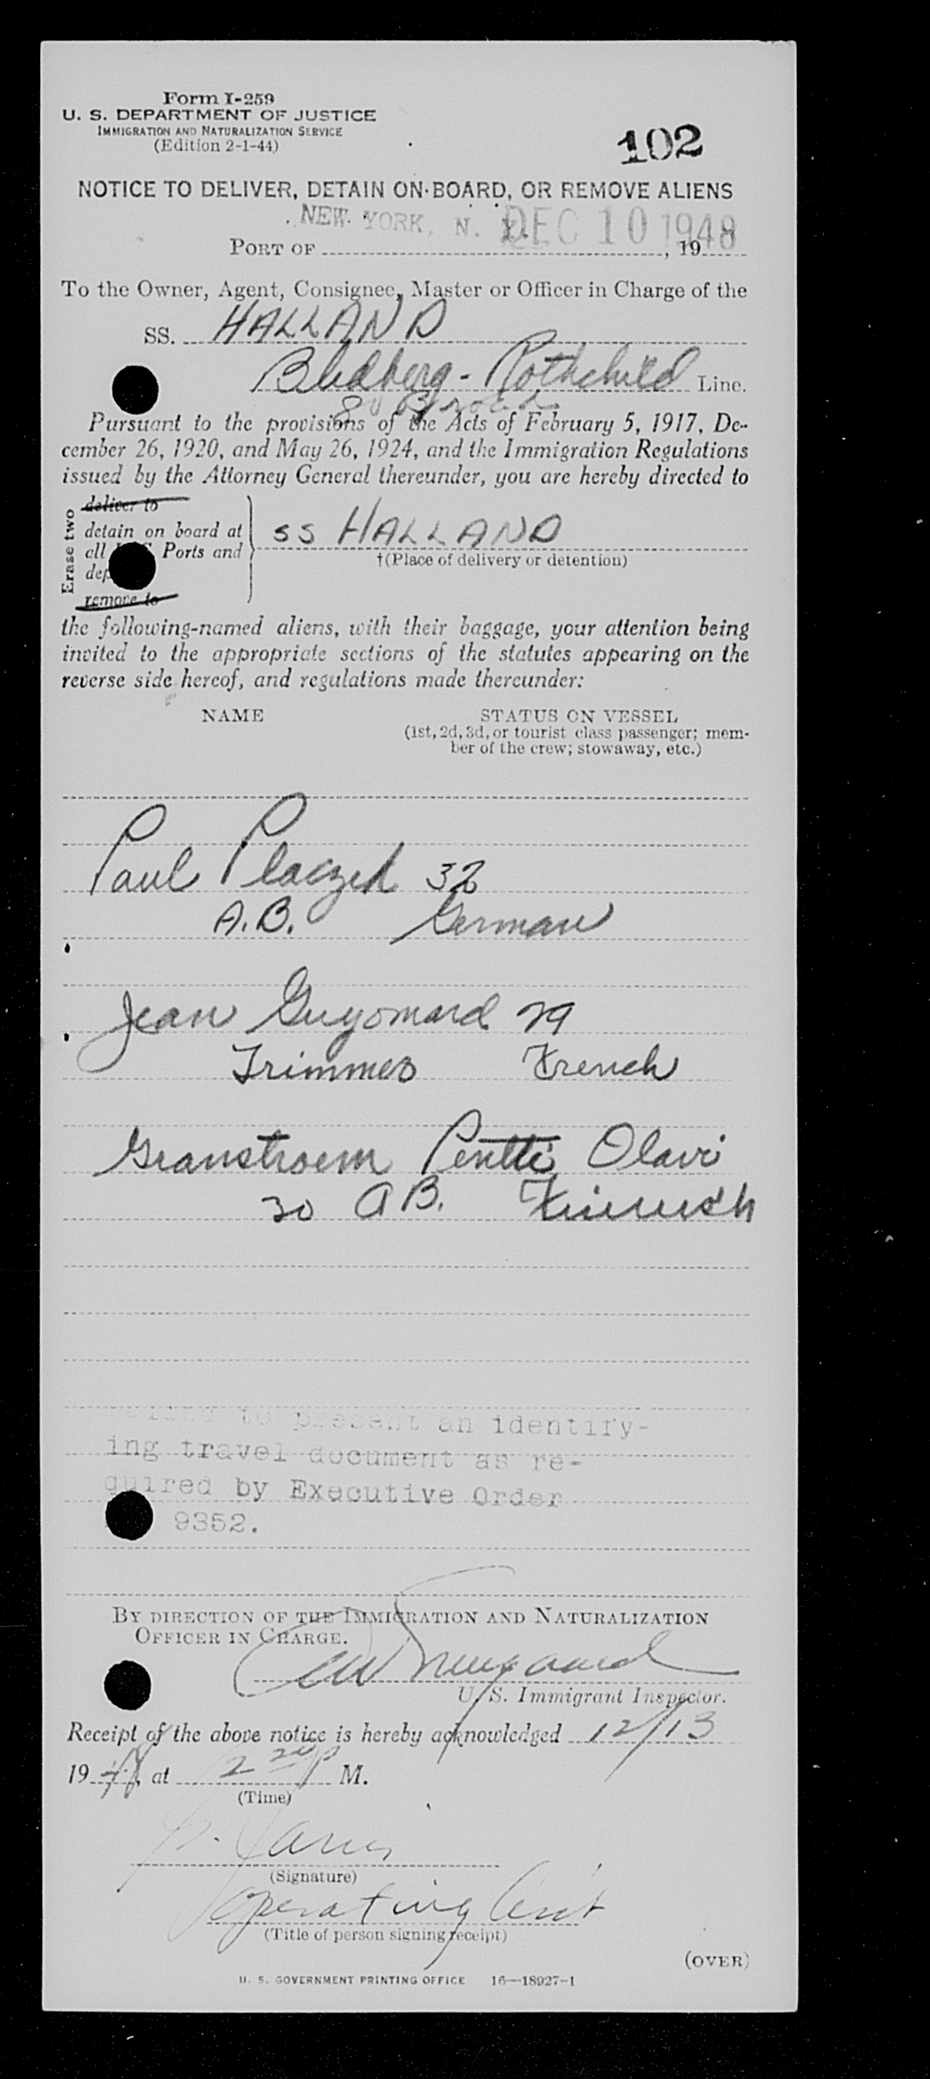 Form I-259
U. S. DEPARTMENT OF JUSTICE
IMMIGRATION AND NATURALIZATION SERVICE
(Edition 2-1-44)
102
NOTICE TO DELIVER, DETAIN ON BOARD, OR REMOVE ALIENS
NEW YORK, N. Y. DEC 10 1948
PORT OF , 19
To the Owner, Agent, Consignee, Master or Officer in Charge of the
SS. HALLAND
Blidberg - Rothchild Line.
80 Broad
Pursuant to the provisions of the Acts of February 5, 1917, De-
cember 26, 1920, and May 26, 1924, and the Immigration Regulations
issued by the Attorney General thereunder, you are hereby directed to
Erase two
deliver to
detain on board at
all Ports and
remove to
SS HALLAND
†(Place of delivery or detention)
the following-named aliens, with their baggage, your attention being
invited to the appropriate sections of the statutes appearing on the
reverse side hereof, and regulations made thereunder:
NAME STATUS ON VESSEL
(1st, 2d, 3d, or tourist class passenger; mem-
ber of the crew; stowaway, etc.)
Paul Placzek 32
A.B. German
Jean Guyomard 29
Trimmer French
Granstroem Pentti Olavi
30 AB. Finnish
to present an identify-
ing travel document as re-
quired by Executive Order
9352.
BY DIRECTION OF THE IMMIGRATION AND NATURALIZATION
OFFICER IN CHARGE.
U. S. Immigrant Inspector.
Receipt of the above notice is hereby acknowledged 12/13
1948, at 2 20 P M.
(Time)
(Signature)
Operating Asst
(Title of person signing receipt)
(OVER)
U. S. GOVERNMENT PRINTING OFFICE 16—18927-1